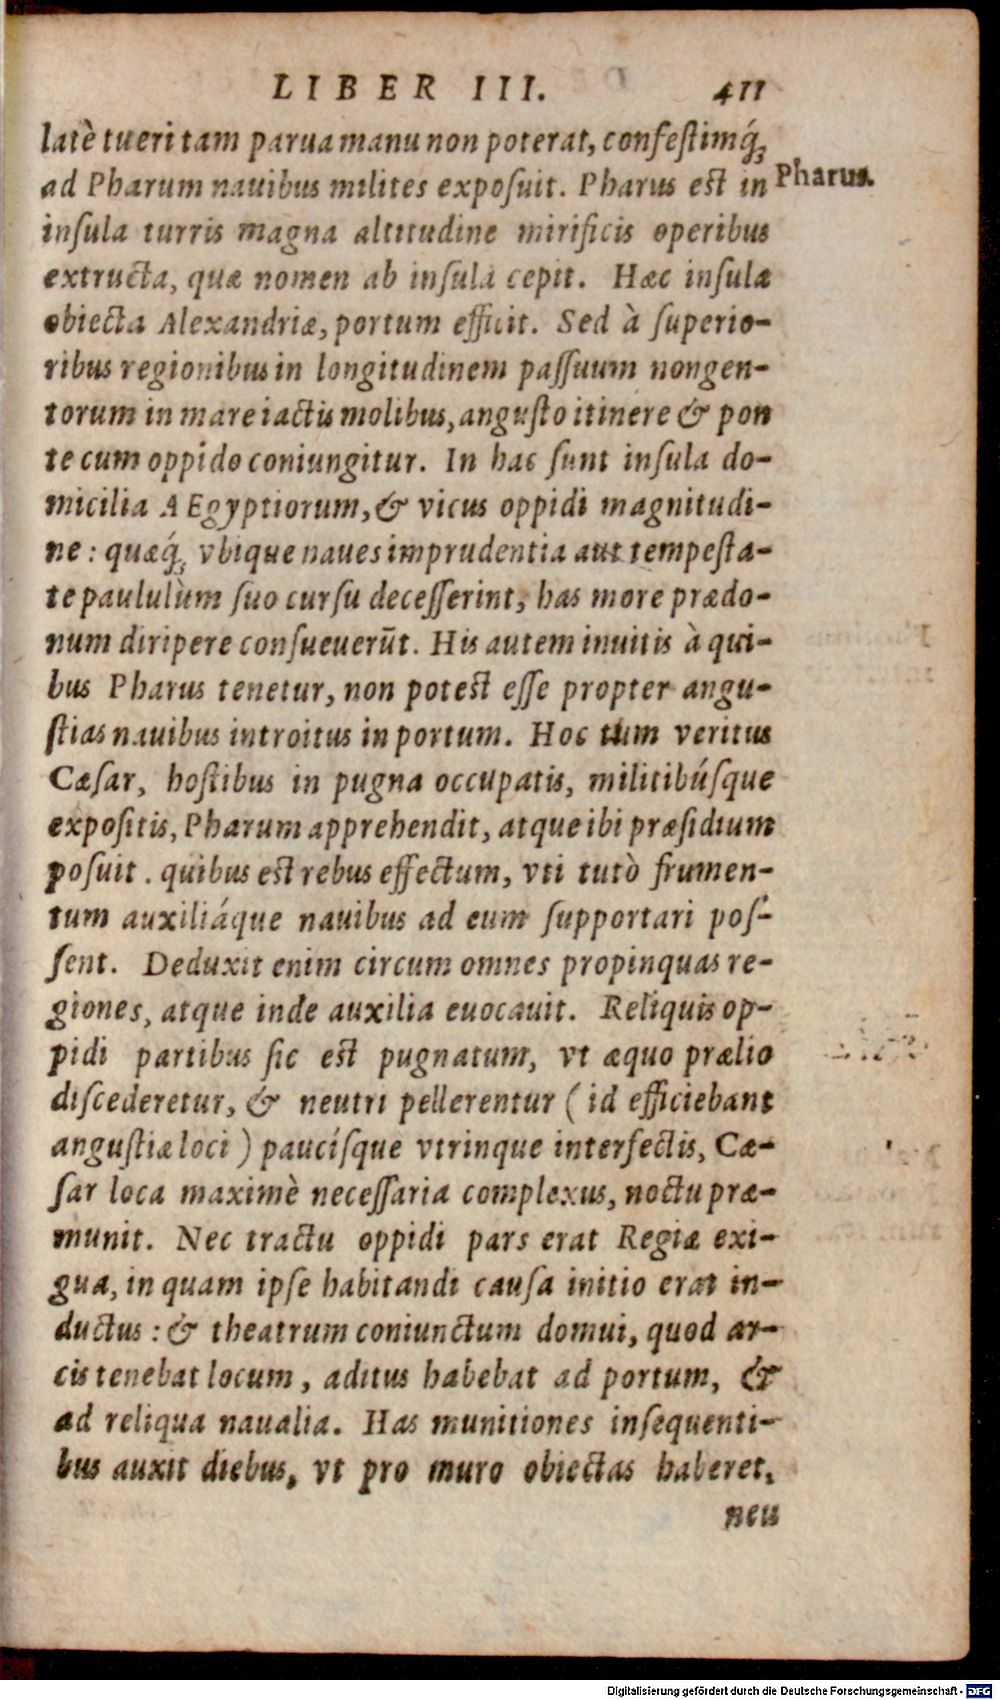 LIBER III. 411
latè tueri tam parua manu non poterat, confestimq́;
ad Pharum nauibus milites exposuit. Pharus est in
Pharus.
insula turris magna altitudine mirificis operibus
extructa, quæ nomen ab insula cepit. Hæc insula
obiecta Alexandriæ, portum efficit. Sed à superio-
ribus regionibus in longitudinem passuum nongen-
torum in mare iactis molibus, angusto itinere & pon
te cum oppido coniungitur. In hac sunt insula do-
micilia AEgyptiorum, & vicus oppidi magnitudi-
ne: quæq́; vbique naues imprudentia aut tempesta-
te paululùm suo cursu decesserint, has more prædo-
num diripere consueuerūt. His autem inuitis à qui-
bus Pharus tenetur, non potest esse propter angu-
stias nauibus introitus in portum. Hoc tum veritus
Cæsar, hostibus in pugna occupatis, militibúsque
expositis, Pharum apprehendit, atque ibi præsidium
posuit. quibus est rebus effectum, vti tutò frumen-
tum auxiliáque nauibus ad eum supportari pos-
sent. Deduxit enim circum omnes propinquas re-
giones, atque inde auxilia euocauit. Reliquis op-
pidi partibus sic est pugnatum, vt æquo prælio
discederetur, & neutri pellerentur (id efficiebant
angustiæ loci) paucísque vtrinque interfectis, Cæ-
sar loca maximè necessaria complexus, noctu præ-
munit. Nec tractu oppidi pars erat Regiæ exi-
gua, in quam ipse habitandi causa initio erat in-
ductus: & theatrum coniunctum domui, quod ar-
cis tenebat locum, aditus habebat ad portum, &
ad reliqua naualia. Has munitiones insequenti-
bus auxit diebus, vt pro muro obiectas haberet,
neu
Digitalisierung gefördert durch die Deutsche Forschungsgemeinschaft - DFG